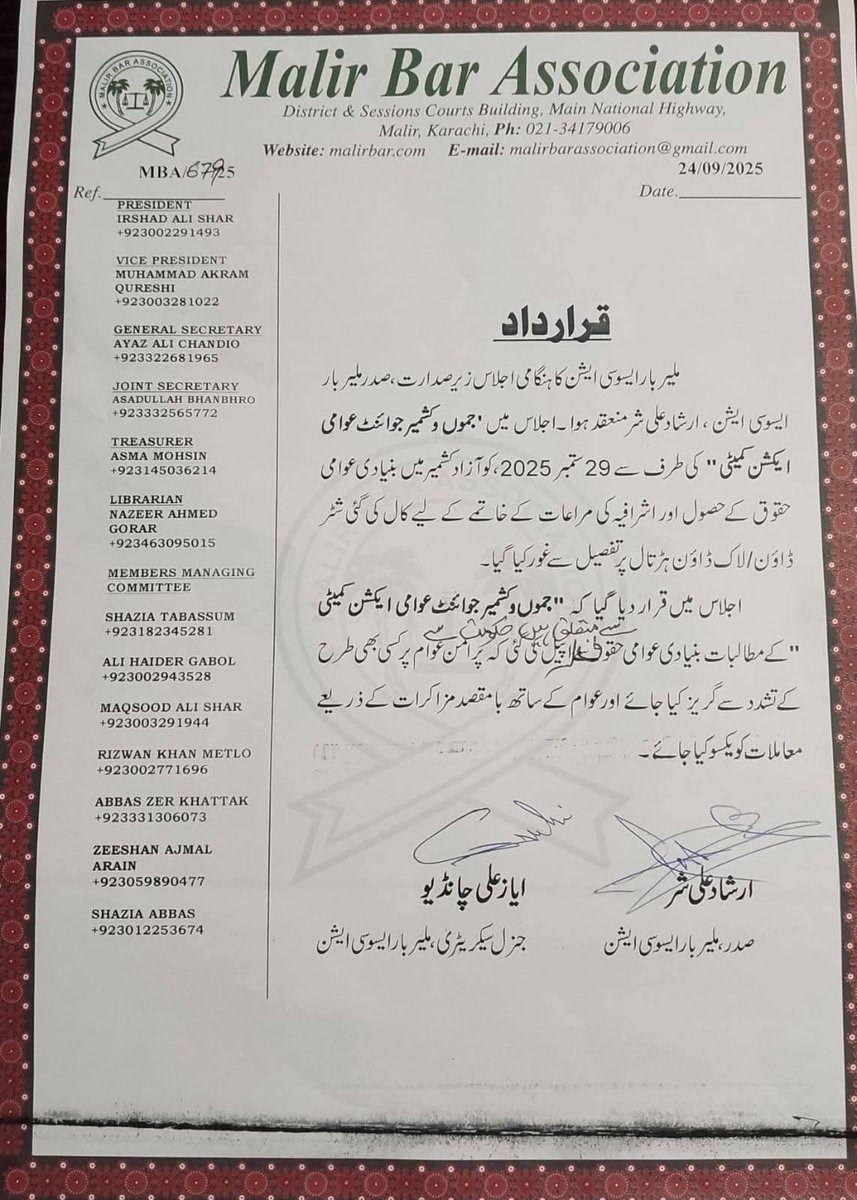 MALIR BAR ASSOCIATION
Malir Bar Association
District & Sessions Courts Building, Main National Highway,
Malir, Karachi, Ph: 021-34179006
Website: malirbar.com E-mail: malirbarassociation@gmail.com
MBA/679/25
24/09/2025
Ref.
Date.
PRESIDENT
IRSHAD ALI SHAR
+923002291493
VICE PRESIDENT
MUHAMMAD AKRAM
QURESHI
+923003281022
GENERAL SECRETARY
AYAZ ALI CHANDIO
+923322681965
JOINT SECRETARY
ASADULLAH BHANBHRO
+923332565772
TREASURER
ASMA MOHSIN
+923145036214
LIBRARIAN
NAZEER AHMED
GORAR
+923463095015
MEMBERS MANAGING
COMMITTEE
SHAZIA TABASSUM
+923182345281
ALI HAIDER GABOL
+923002943528
MAQSOOD ALI SHAR
+923003291944
RIZWAN KHAN METLO
+923002771696
ABBAS ZER KHATTAK
+923331306073
ZEESHAN AJMAL
ARAIN
+923059890477
SHAZIA ABBAS
+923012253674
قرارداد
ملیر بار ایسوسی ایشن کا ہنگامی اجلاس زیر صدارت، صدر ملیر بار
ایسوسی ایشن، ارشاد علی شر منعقد ہوا۔ اجلاس میں "جموں و کشمیر جوائنٹ عوامی
ایکشن کمیٹی" کی طرف سے 29 ستمبر 2025، کو آزاد کشمیر میں بنیادی عوامی
حقوق کے حصول اور اشرافیہ کی مراعات کے خاتمے کے لیے کال کی گئی شٹر
ڈاؤن/لاک ڈاؤن ہڑتال پر تفصیل سے غور کیا گیا۔
اجلاس میں قرار دیا گیا کہ "جموں و کشمیر جوائنٹ عوامی ایکشن کمیٹی
سے متعلق ہیں حکومت سے
" کے مطالبات بنیادی عوامی حقوق اپیل کی گئی کہ پرامن عوام پر کسی بھی طرح
کے تشدد سے گریز کیا جائے اور عوام کے ساتھ بامقصد مزاکرات کے ذریعے
معاملات کو یکسو کیا جائے۔
ارشاد علی شر
صدر، ملیر بار ایسوسی ایشن
ایاز علی چانڈیو
جنرل سیکریٹری، ملیر بار ایسوسی ایشن